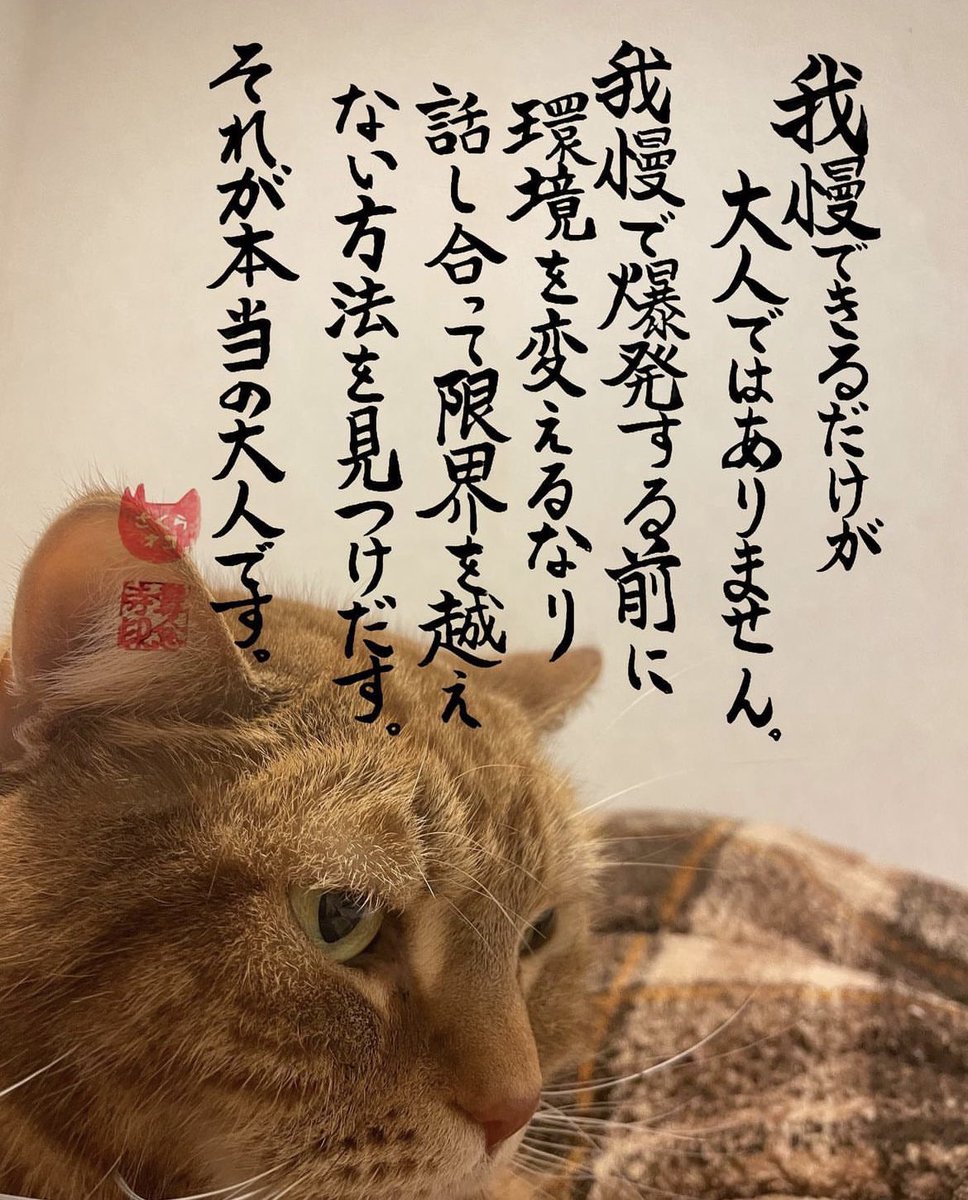 我慢できるだけが
大人ではありません。
我慢で爆発する前に
環境を変えるなり
話し合って限界を越え
ない方法を見つけだす。
それが本当の大人です。